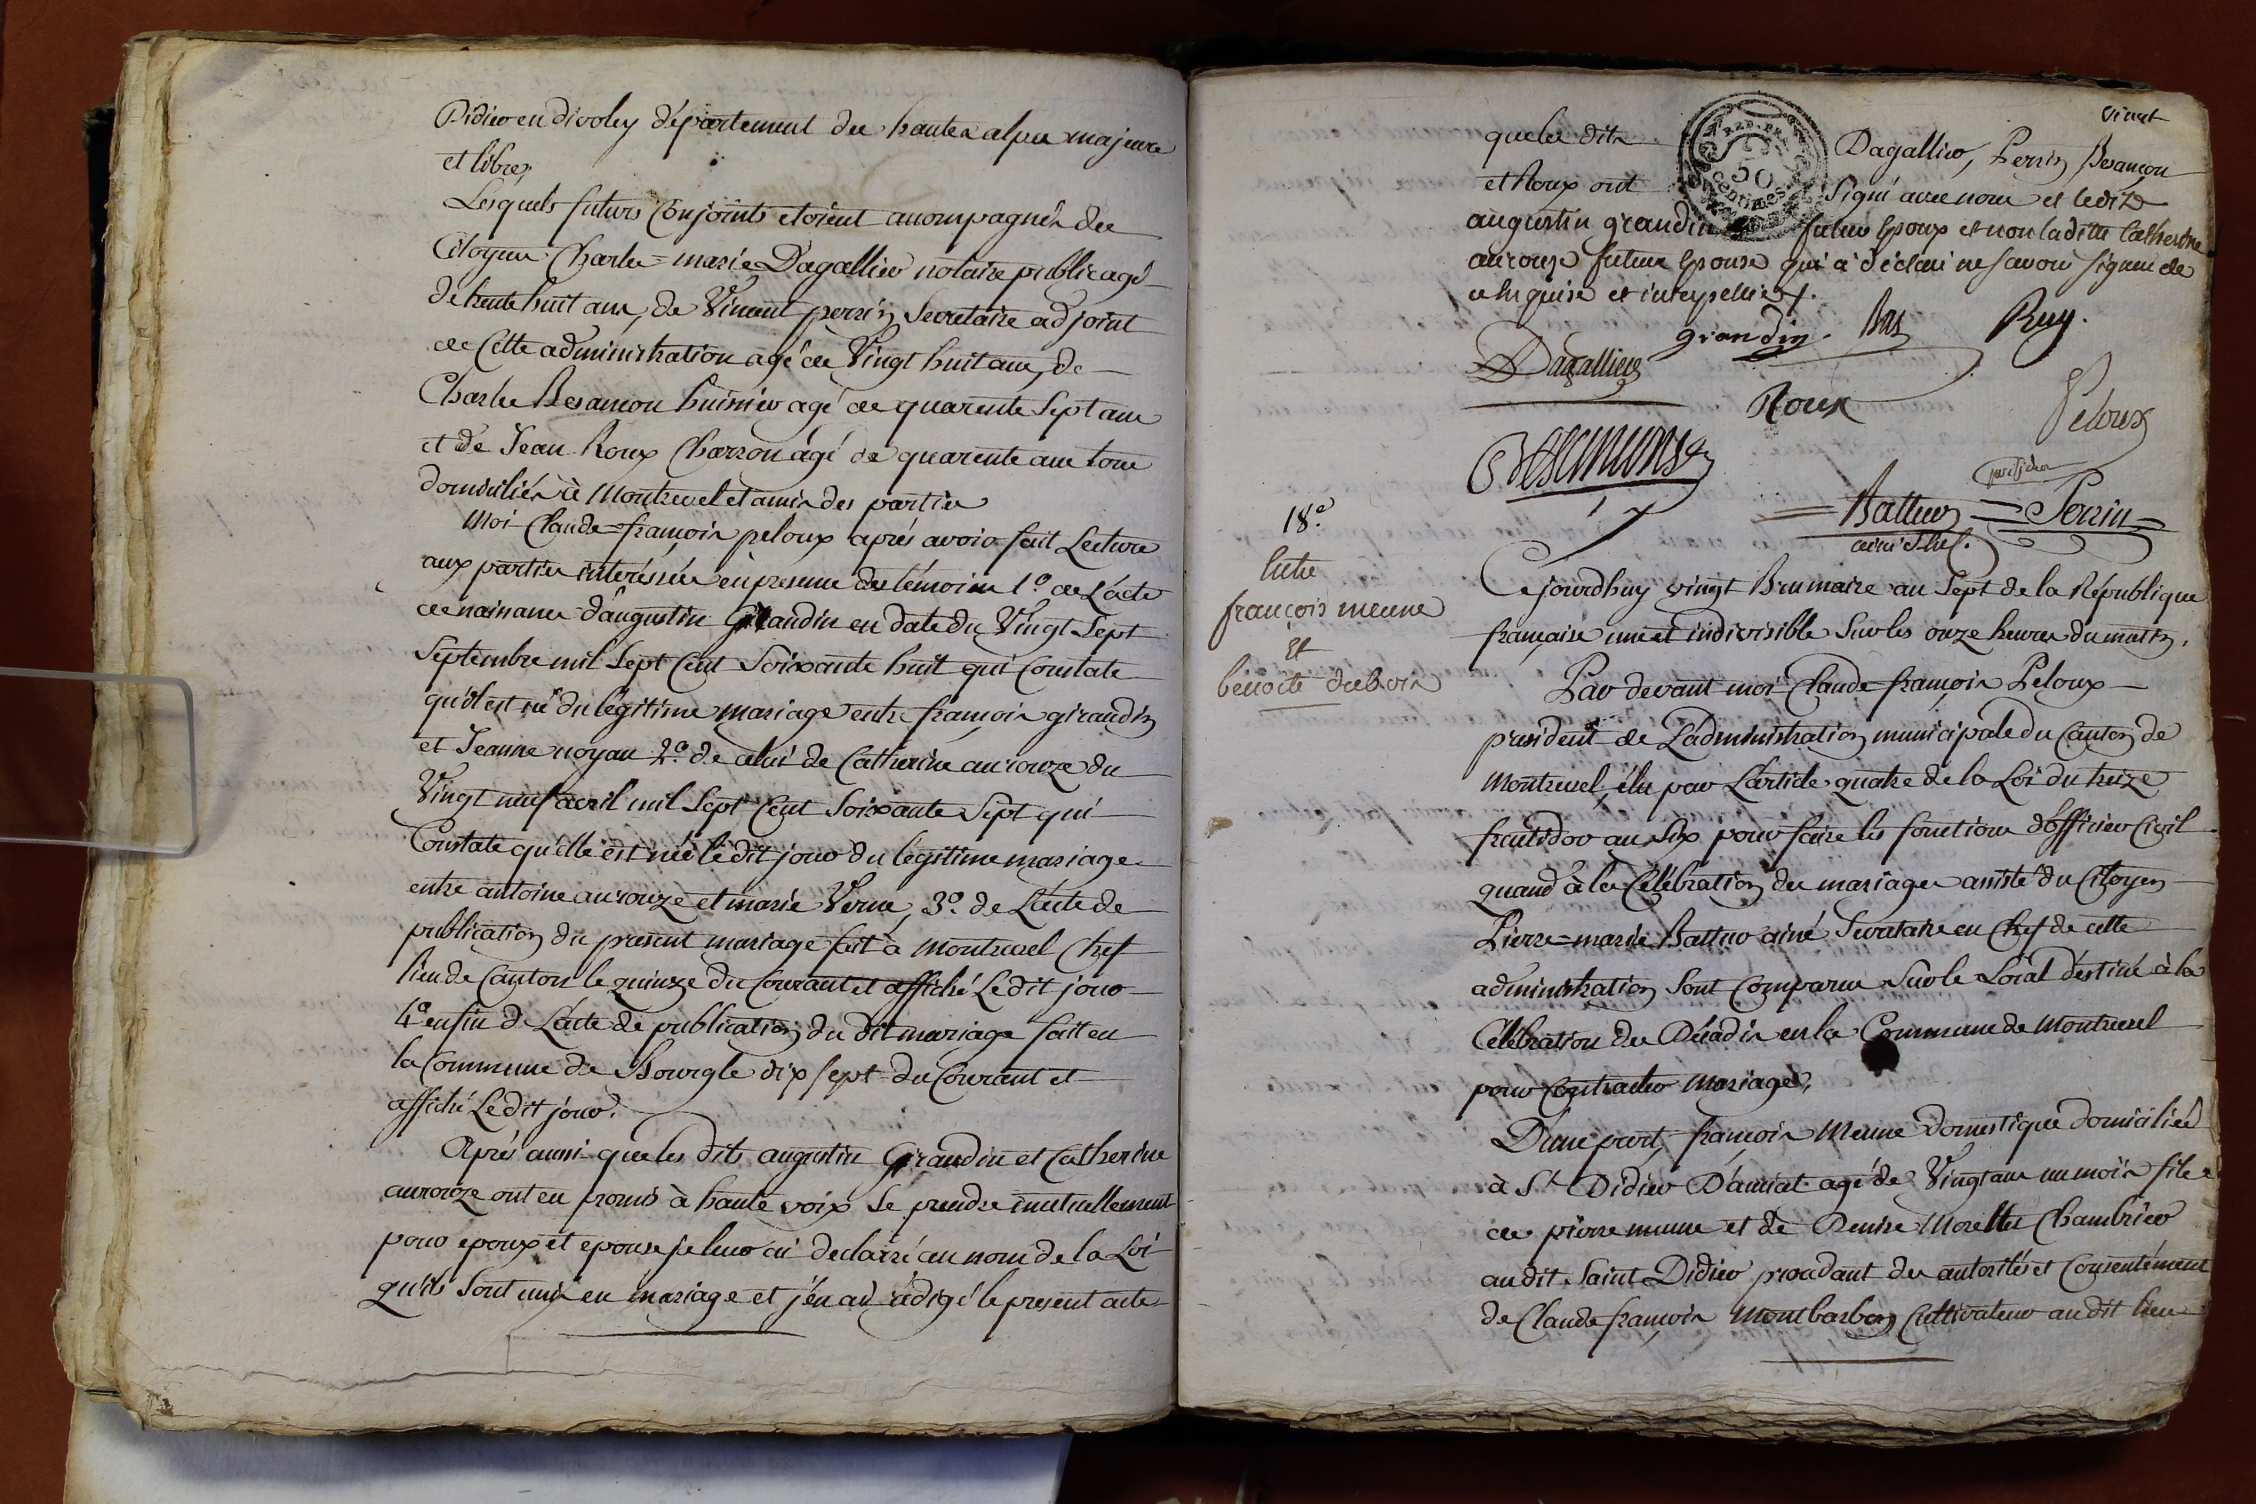 Didier en divoley département des hautes alpes majeure
et libre,
Lesquels futurs Conjoints etoient accompagnés des
Citoyens Charles=marie Dagallier notaire public agé
de trente huit ans, de Vincent perrin Secretaire adjoint
de Cette administration agé de Vingt huit ans, de
Charles Besançon huissier agé de quarente Sept ans
et de Jean Roux Charron agé de quarente ans tous
domiciliés à Montrevel et amis des parties
Moi Claude=françois peloux aprés avoir fait Lecture
aux parties intéressées en presence des témoins 1.º de L'acte
de naissance d'augustin Girandin en date du Vingt Sept
Septembre mil Sept Cent Soixante huit qui Constate
qu'il est né du légitime mariage entre françois girandin
et Jeanne noyau 2.º de celui de Catherine aurouze du
Vingt neuf avril mil Sept Cent Soixante Sept qui
Constate qu'elle est née le dit jour du légitime mariage
entre antoine aurouze et marie Verne, 3.º de L'acte de
publication du present mariage fait à Montrevel Chef
lieu de Canton le quinze du Courant et affiché Ledit jour
4.º enfin de L'acte de publication du dit mariage fait en
la Commune de Bourg le dix sept du Courant et
affiché Ledit jour.
Après aussi que les dits augustin Girandin et Catherine
aurouze ont eu promis à haute voix Se prendre mutuellement
pour epoux et epouse je leur ai declaré au nom de la Loi
qu'ils Sont unis en mariage et j'en ai rédigé le present acte
vinct
que les dits Dagallier, Perrin Besançon
et Roux ont Signé avec nous et ledit
RÉP. FR.
50
centimes
augustin girandin futur Epoux et non la ditte Catherine
aurouze future Epouse qui à déclaré ne savoir signer de
ce enquise et interpellée.
girandin. Bas Ruy.
Dagallier
Roux
Peloux
Besançons
président
Batteur Perrin
ainé S. chef.
18.e
Entre
françois meune
Et
benoite dubois
Cejourdhuy vingt Brumaire an Sept de la République
française une et indivisible Sur les onze heures du matin,
Par devant moi Claude françois Peloux
président de L'administration municipale du Canton de
Montrevel, élu par L'article quatre de la Loi du treize
fructidor an Six pour faire les fonctions d'officier Civil
quand à la Célébration des mariages assisté du Citoyen
Pierre=marie Batteur ainé Secrataire en Chef de cette
administration Sont Comparus Sur le Local destiné à la
Célébration des Décadis en la Commune de Montrevel
pour Contracter Mariage,
D'une part, françois Meune Domestique domicilié
à St. Didier D'aussiat agé de Vingt ans un mois fils
de pierre meune et de Denise Morellet Chambrier
au dit Saint Didier procédant des autorités et Consentément
de Claude françois Montbarbon Cultivateur au dit lieu